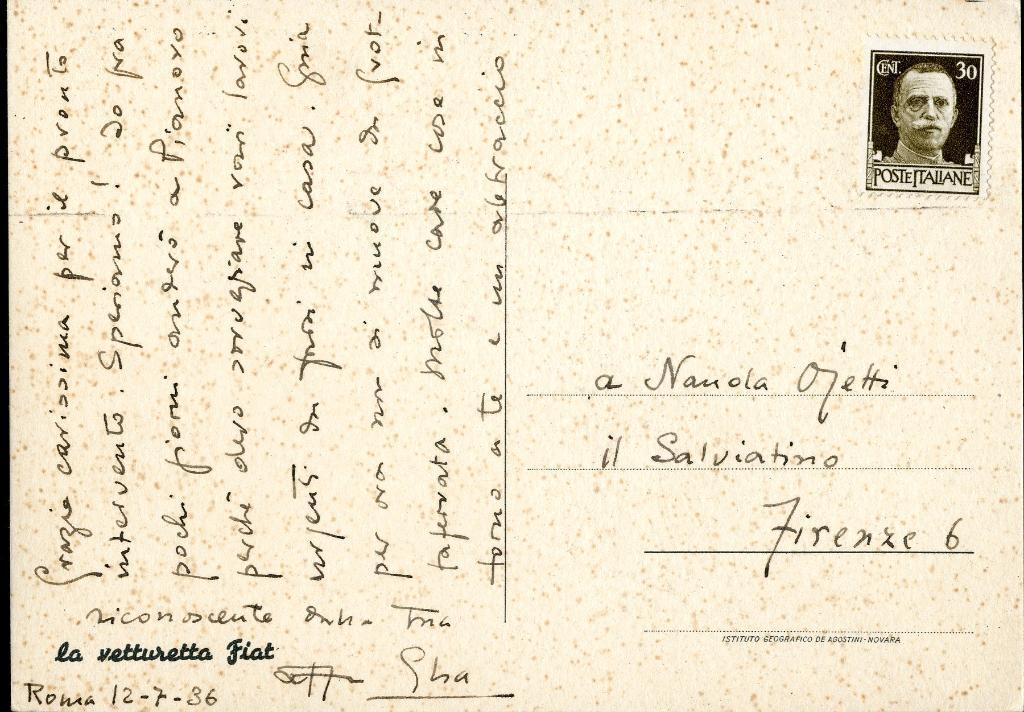 Grazie carissima per il pronto
intervento. Speriamo! Io fra
pochi giorni andrò a Pianoro
perché devo sorvegliare vari lavori
urgenti da farsi in casa.
per ora non si muove da Grot-
taferrata. Molte care cose in
torno a te e un abbraccio
riconoscente dalla Tua
la vetturetta Fiat
Roma 12-7-36
CENT. 30
POSTE ITALIANE
a Nanda Ojetti
il Salviatino
Firenze 6
ISTITUTO GEOGRAFICO DE AGOSTINI - NOVARA